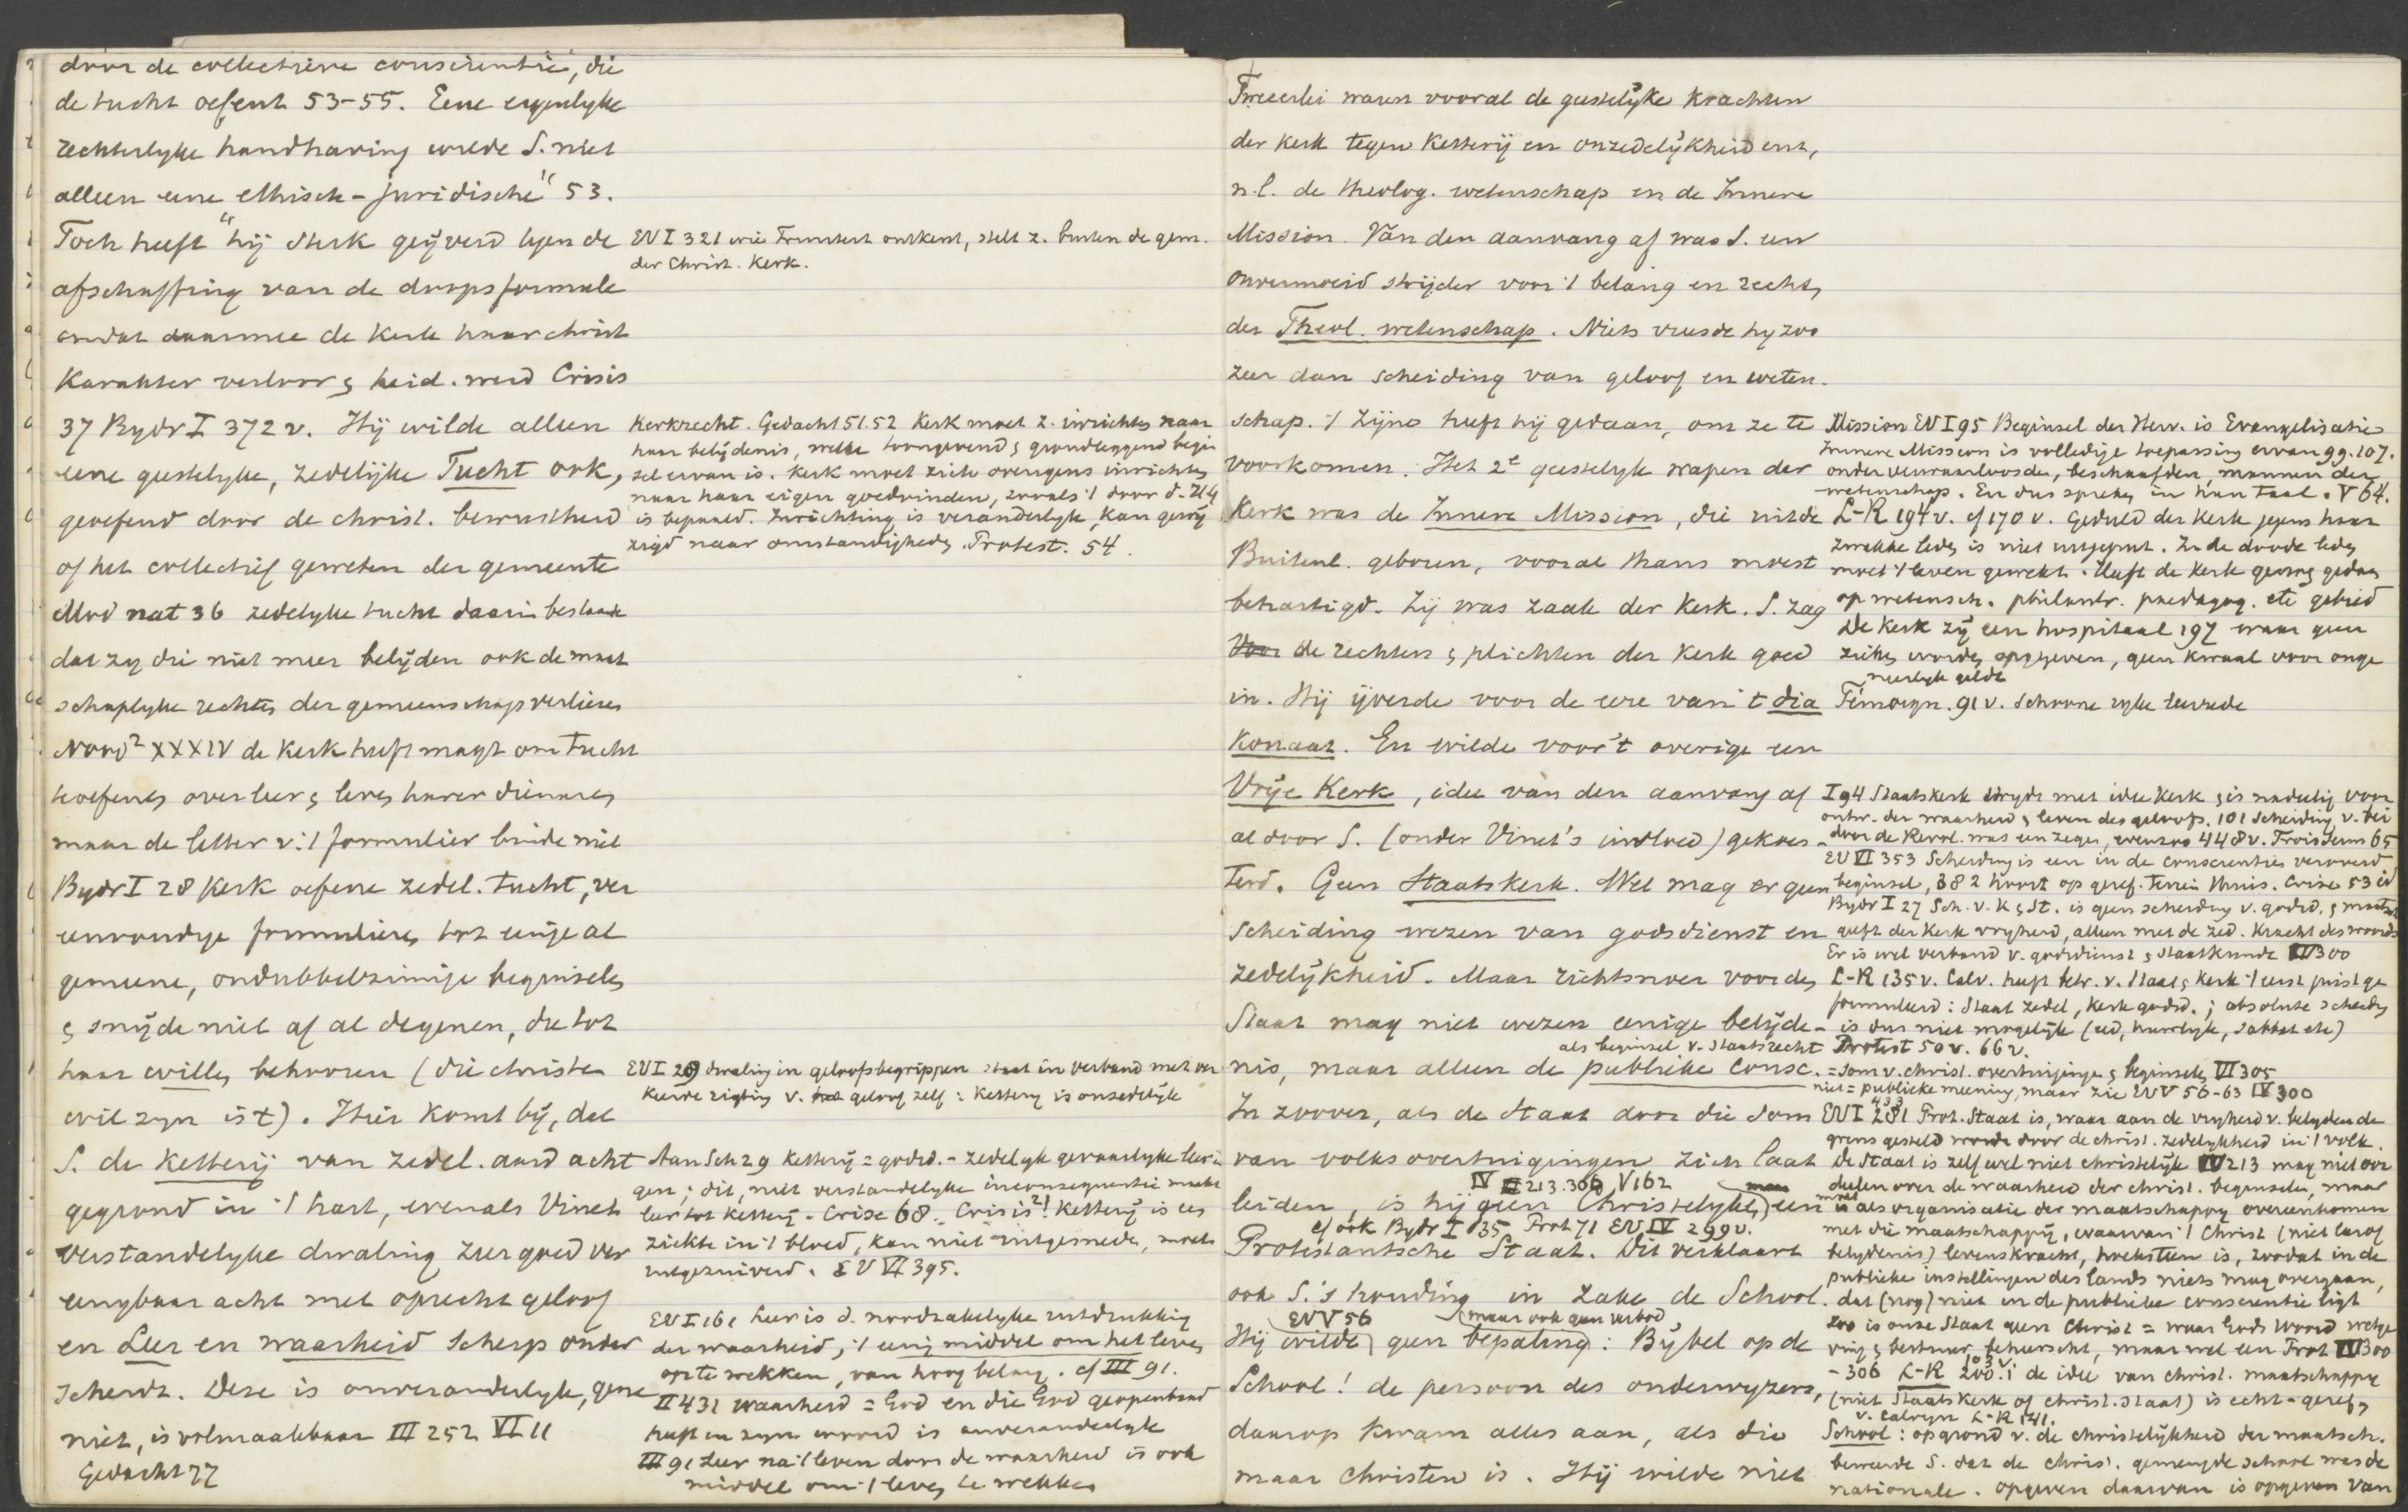 door de collectieve conscientie, die
de tucht oefent 53-55. Eene eigenlyke
rechterlyke handhaving wilde S. niet
alleen eene ethisch-juridische" 53.
Toch heeft "hij sterk geijverd tegen de
afschaffing van de doopsformule
omdat daarmee de Kerk haar christ
Karakter verloor & heid. werd Crisis
37 Bydr I 372 v. Hij wilde alleen
eene geestelyke, zedelijke Tucht ook,
geoefend door de christ. bewustheid
of het collectief geweten der gemeente
Mod nat 36 zedelyke tucht daarin bestaande
dat zy die niet meer belijden ook de maat
schaplyke rechten der gemeenschap verliezen
Nood² XXXIV de Kerk heeft magt om tucht
te oefenen over leer & leven harer dienaren
maar de letter v. 't formulier binde niet
Bydr I 28 Kerk oefene zedel. tucht, ver
eenvoudige formulieren tot eenige al
gemeene, ondubbelzinnige beginselen
& snijde niet af al degenen, die tot
haar willen behooren (die christen
wil zyn is 't). Hier komt bij, dat
S. de Ketterij van zedel. aard acht
gegrond in 't hart, evenals Vinet
verstandelyke dwaling zeer goed ver
eenygbaar acht met oprecht geloof
en Leer en waarheid scherp onder
scheidt. Deze is onveranderlyk, gene
niet, is volmaakbaar III 252 VI 11
Gedacht 77
EV I 321 wie Trinitest ontkent, stelt z. buiten de gem.
der Christ. Kerk.
Kerkrecht. Gedacht 51.52 Kerk moet z. inrichten naar
haar belijdenis, welke toongevend & grondleggend begin
sel ervan is. Kerk moet zich overigens inrichten
naar haar eigen goedvinden, zooals 't door d. H G
is bepaald. Inrichting is veranderlyk, kan gewij
zigd naar omstandigheden. Protest. 54.
EV I 29 dwaling in geloofsbegrippen staat in verband met ver
keerde rigting v. geloof zelf: Kettery is onzedelyk
Aan Sch 29 Ketterij = godsd.- zedelyk gevaarlyke leerin
gen; dit, niet verstandelyke inconsequentie maakt
leer tot Ketterij - Crise 68. Crisis 21 Ketterij is een
ziekte in 't bloed, kan niet uitgesneden, moet
uitgezuiverd. EV VI 395.
EV I 161 Leer is d. noodzakelyke uitdrukking
der waarheid, 't eenig middel om het leven
op te wekken, van hoog belang. cf III 91.
II 431 waarheid = God en die God geopenbaard
heeft en zyn woord is onveranderlyk
III 91 Leer na 't leven door de waarheid is ook
middel om 't leven te wekken
Tweeerlei waren vooral de geestelijke krachten
der kerk tegen Ketterij en onzedelijkheid enz.,
n.l. de theolog. wetenschap en de Innere
Mission. Van den aanvang af was S. een
onvermoeid strijder voor 't belang en recht,
der Theol. wetenschap. Niets vreesde hy zoo
zeer dan scheiding van geloof en weten-
schap. 't Zijne heeft hij gedaan, om ze te
voorkomen. Het 2e geestelyk wapen der
Kerk was de Innere Mission, die uit de
Buitenl. geboren, vooral thans moest
behartigd. Zij was zaak der Kerk. S. zag
de rechten & plichten der Kerk goed
in. Hij ijverde voor de eere van 't dia
konaat. En wilde voor 't overige een
Vrije Kerk, idee van den aanvang af
al door S. (onder Vinet's invloed) gekoes-
terd. Geen Staatskerk. Wel mag er geen
Scheiding wezen van godsdienst en
zedelijkheid. Maar richtsnoer voor den
Staat mag niet wezen eenige belijde-
als beginsel v. Staatsrecht
nis, maar alleen de publieke Consc.
In zoover, als de Staat door die som
van volksovertuigingen zich laat
IV 213.306 V 162
leiden, is hij geen Christelyke, een
cf ook Bydr I 35 Prot 71 EV IV 299 v.
Protestantsche Staat. Dit verklaart
ook S.'s houding in zake de School.
EV V 56 (maar ook geen verbod)
Hij wilde geen bepaling: Bijbel op de
School! de persoon des onderwyzers,
daarop kwam alles aan, als die
maar Christen is. Hij wilde niet
Mission EV I 95 Beginsel der Herv. is Evangelisatie
Innere Mission is volledige toepassing ervan 99.107.
onder verwaarloosden, beschaafden, mannen der
wetenschap. En dus spreken in hun taal. V 64.
L-R 194 v. cf 170 v. Geduld der Kerk jegens haar
zwakke leden is niet uitgeput. In de doode leden
moet 't leven gewekt. Heeft de Kerk genoeg gedaan
op wetensch. philantr. paedagog. etc gebied
De Kerk zij een hospitaal 197 waar geen
zieken worden opgegeven, geen kwaal voor onge
neeslyk geldt
Témoign. 91 v. Schoone ryke tweede
I 94 Staatskerk strydt met idee Kerk & is nadeelig voor
ontw. der waarheid & leven des geloofs. 101 Scheiding v. bei
door de Revol. was een zegen, evenzoo 448 v. Trois Serm 65
EV VI 353 Scheiding is een in de conscienties veroverd
beginsel, 382 hoort op geref. terrein thuis. Crise 53 id
Bydr I 27 Sch. v. K & St. is geen scheiding v. godsd. & maatsch
geeft der Kerk vryheid, alleen met de zed. Kracht des woords
Er is wel verband v. godsdienst & staatkunde IV 300
L-R 135 v. Calv. heeft betr. v. Staat & Kerk 't eerst juist ge
formuleerd: Staat zedel, Kerk godsd.; absolute scheiding
is dus niet mogelijk (eed, huwelyk, sabbat etc)
Protest 50 v. 66 v.
= som v. christ. overtuigingen & beginselen VI 305
niet = publieke meening, maar zie EV V 56-63 IV 300
433
EV I 281 Prot. Staat is, waar aan de vryheid v. belydenis de
grens gesteld wordt door de christ. zedelykheid in 't volk.
De Staat is zelf wel niet christelijk IV 213 mag niet oor
deelen over de waarheid der christ. beginselen, maar
moet als organisatie der maatschappy overeenkomen
met die maatschappij, waarvan 't Christ (niet leer of
belydenis) levenskracht, hoeksteen is, zoodat in de
publieke instellingen des lands niets mag overgaan,
dat (nog) niet in de publieke conscientie ligt
Zoo is onze Staat geen Christ = waar Gods Woord wetge
ving & bestuur beheerscht, maar wel een Prot IV 300
- 306 L-R 103 v. : de idee van christ. maatschappy
(niet Staatskerk of christ. staat) is echt-geref.,
v. Calvyn L-R 141.
School: op grond v. de christelijkheid der maatsch.
beweerde S. dat de christ. gemengde school was de
nationale. opgeven daarvan is opgeven van